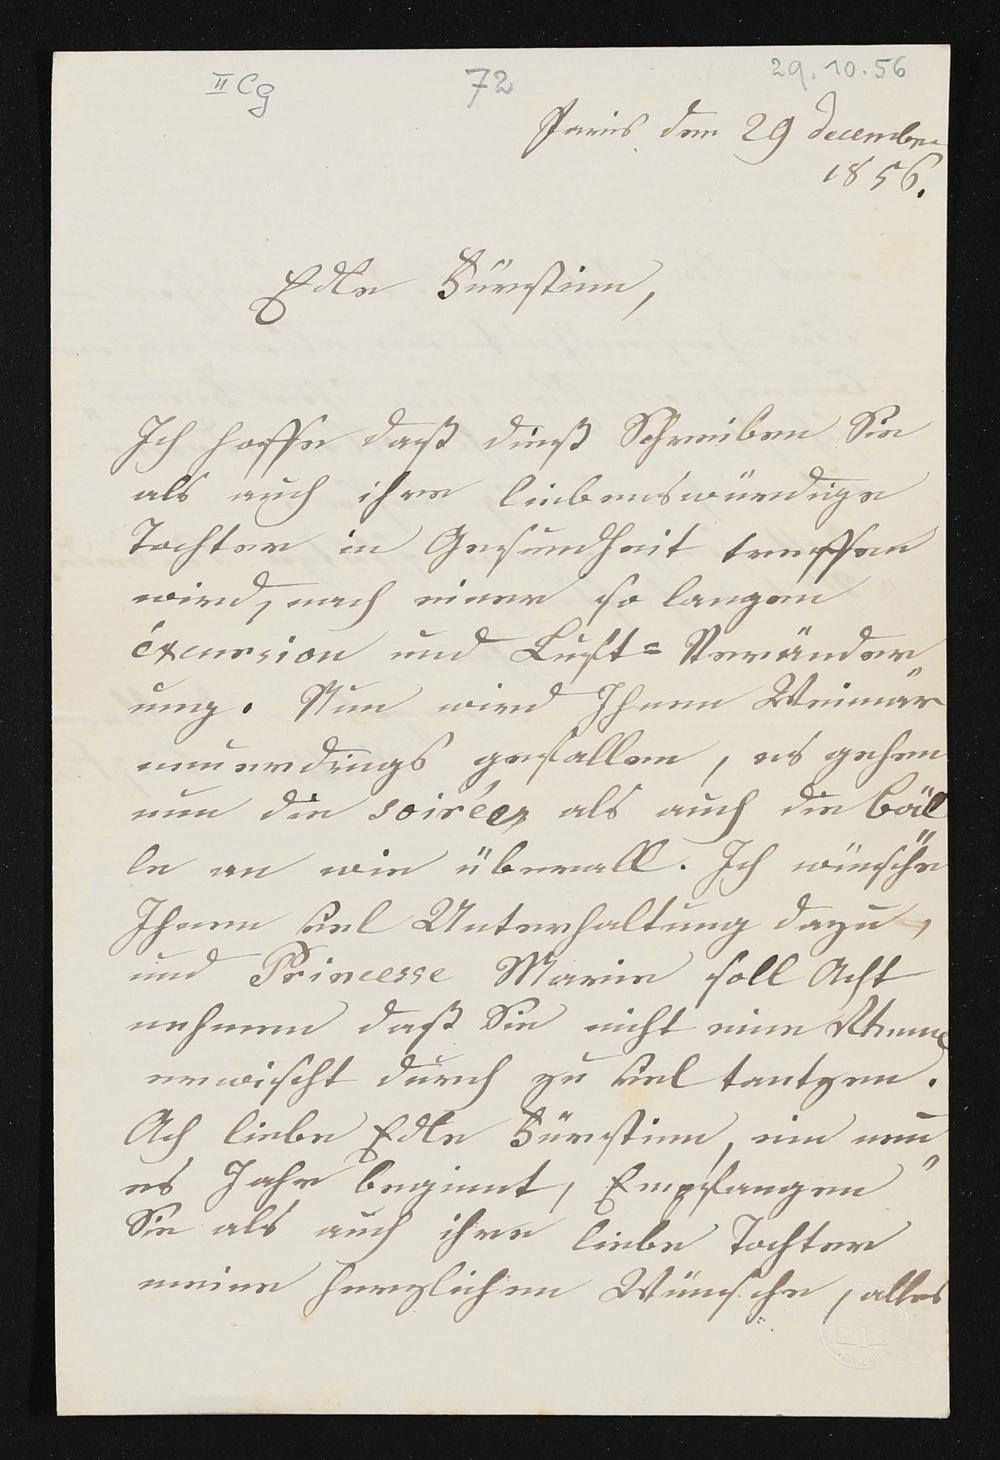 II Cg 72 29.10.56
Paris den 29 december
1856.
Edle Fürstinn,
Ich hoffe daß dieß Schreiben Sie
als auch ihre liebenswürdige
Tochter in Gesundheit treffen
wird, nach einer so langen
éxcursion und Luft= Veränder„
ung. Nun wird Ihnen Weimar
neuerdings gefallen, es gehen
nun die soiréen als auch die Bäl„
le an wie überall. Ich wünsche
Ihnen viel Unterhaltung dazu,
und Princesse Marie soll Acht
nehmen daß Sie nicht eine Rhume
erwischt durch zu viel tantzen.
Ach liebe Edle Fürstinn, ein neu„
es Jahr beginnt, Empfangen
Sie als auch ihre liebe Tochter
meine herzlichen Wünsche, alles